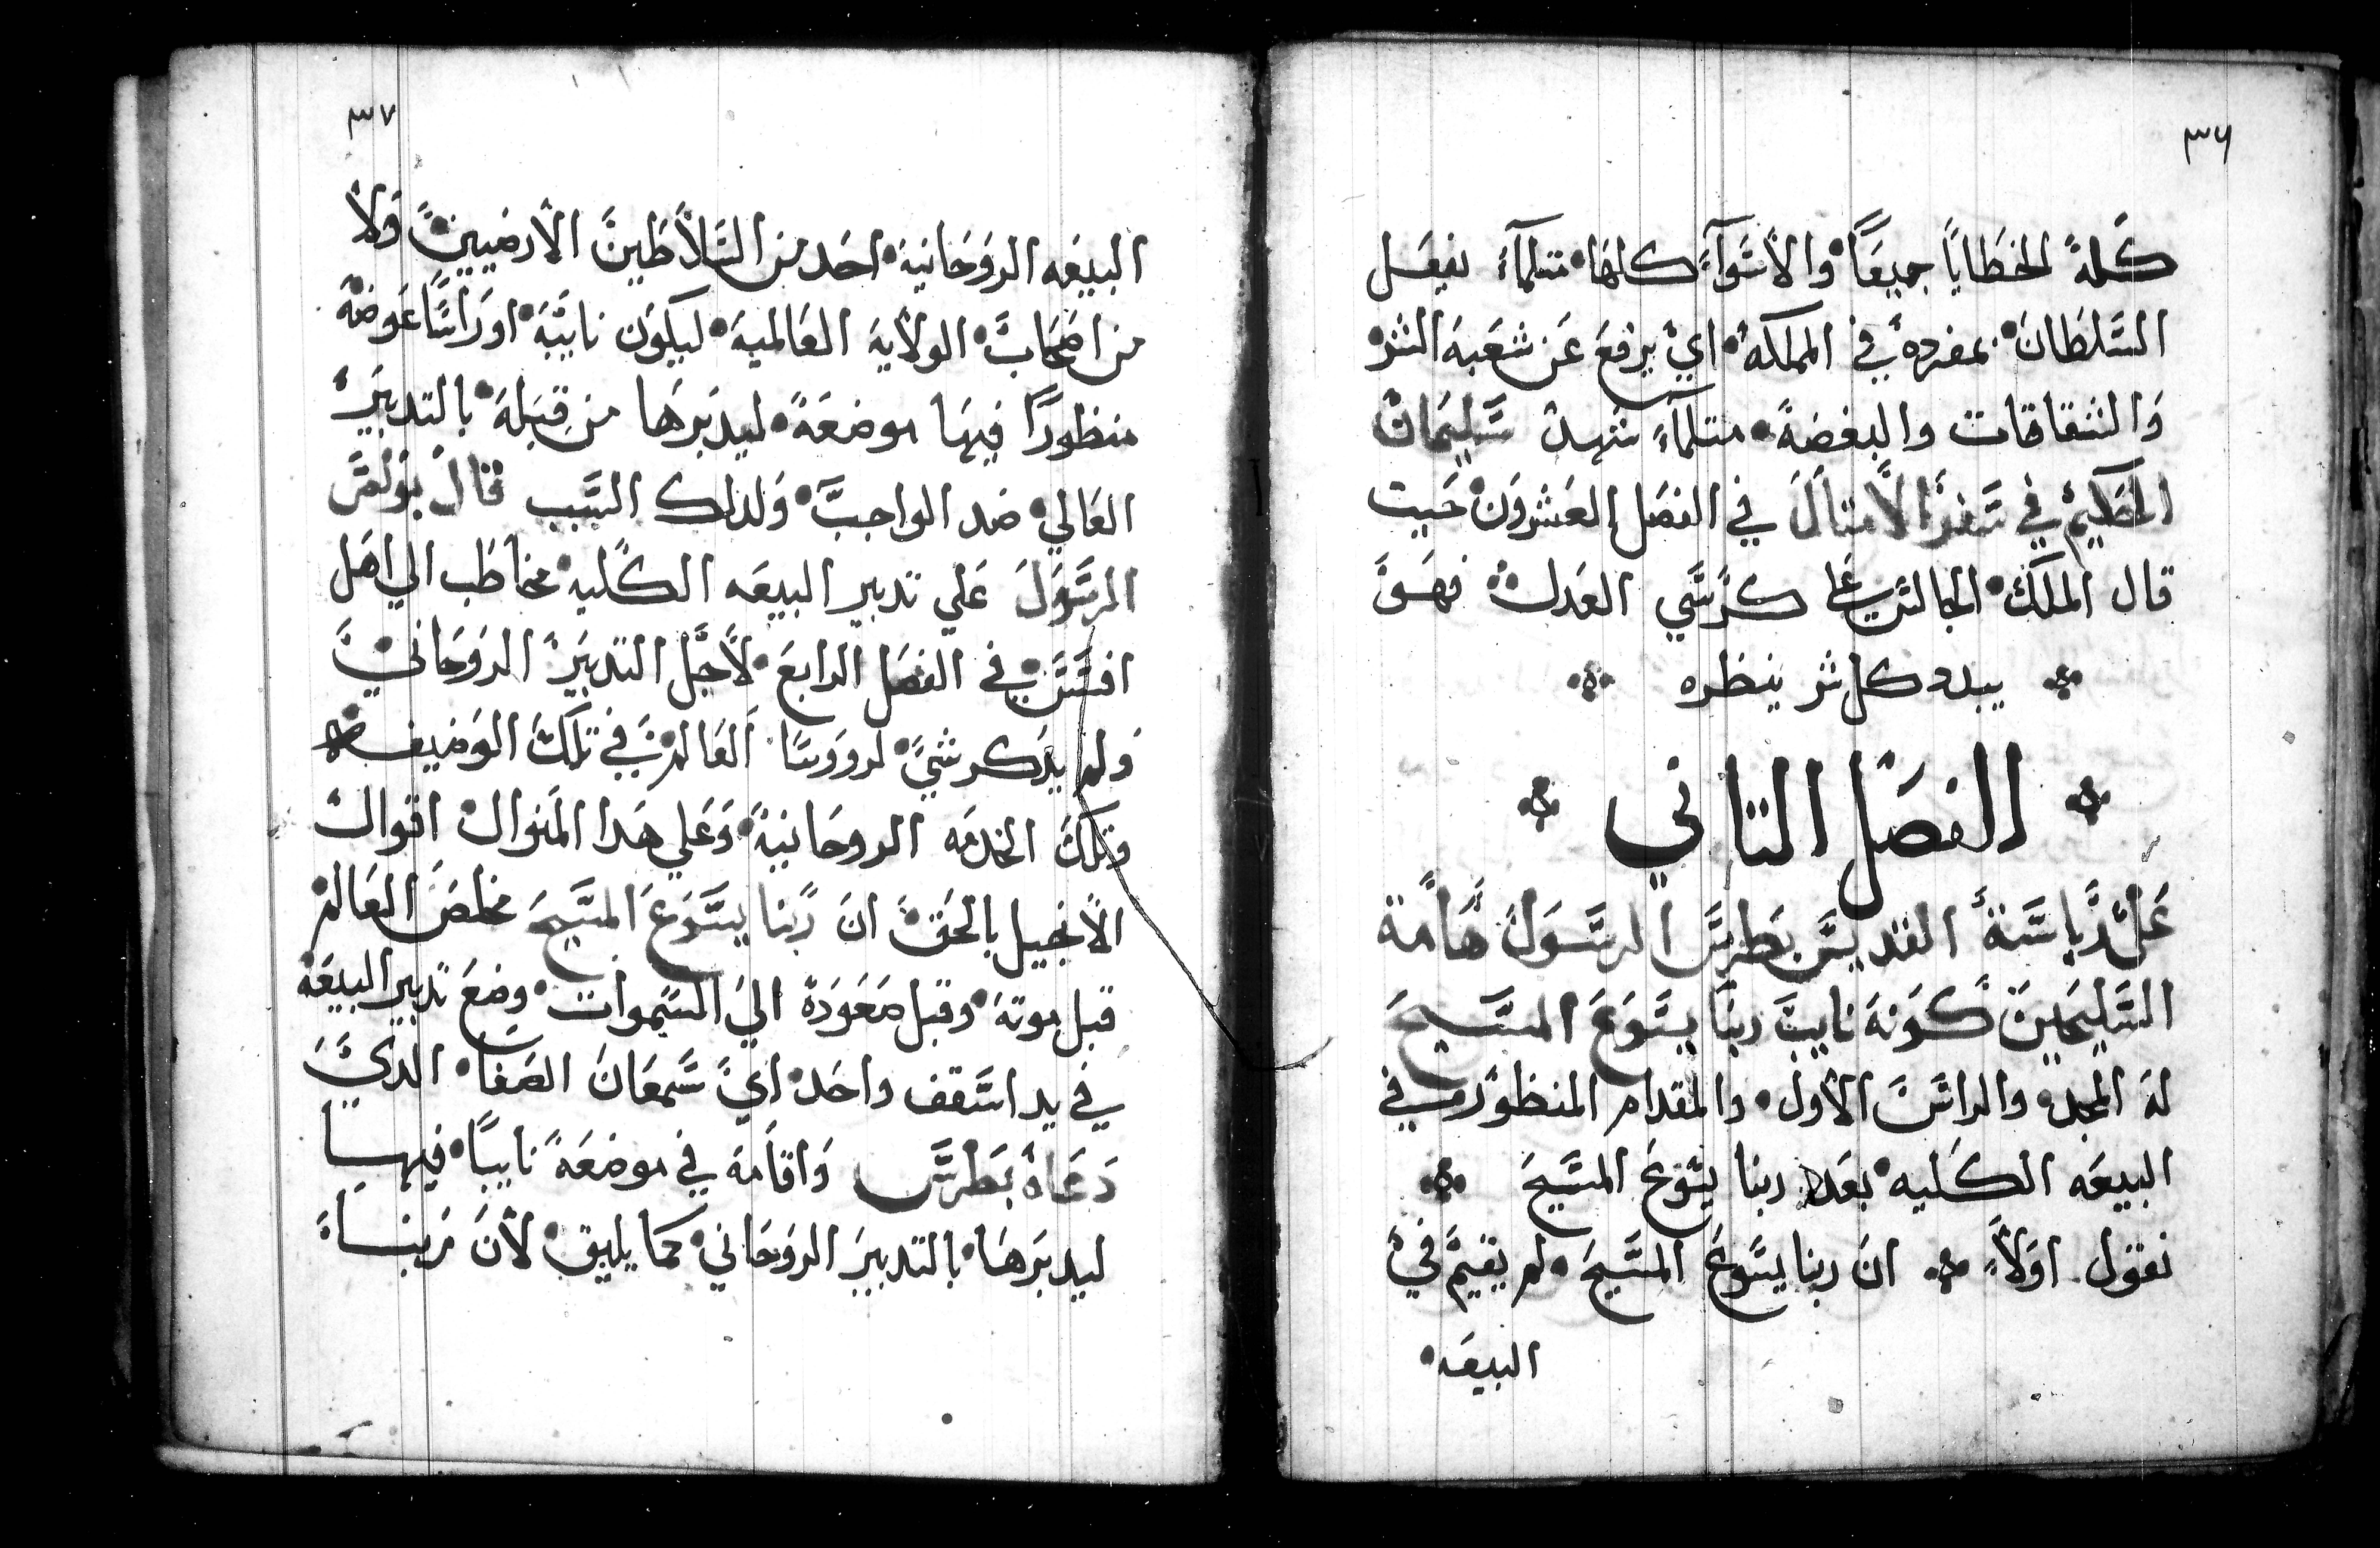 ٣٦
كلمة الخطايا جميعا والاسوآء كلها متلمآ يفعل
السلطان بمفرده في المملكه اي يرفع عن شعبه الشر
والشقاقات والبغضة متلمآ شهد سليمان
الحكيم في سفر الامتال في الفصل العشرون حيت
قال الملك الجالس علي كرسي العدل فهو
يبدد كل شر ينظره
الفصل التاني
على رياسة القديس بطرس الرسول هامة
السليحين كونه نايب ربنا يسوع المسيح
له المجد والراس الاول والمقدام المنظور في
البيعه الكليه بعد ربنا يسوع المسيح
نقول اولا ان ربنا يسوع المسيح لم يقيم في
البيعه
٣٧
البيعه الروحانية احد من السلاطين الارضيين ولا
من اصحاب الولاية العالمية ليكون نايبه او راسا عوضه
منظورا فيها موضعه ليدبرها من قبله بالتدبير
العالي ضد الواجب ولدلك السبب قال بولس
الرسول علي تدبير البيعه الكليه مخاطب الي اهل
افسس في الفصل الرابع لاجل التدبير الروحاني
ولم يدكر شي لرووسا العالم في تلك الوضيفه
وتلك الخدمه الروحانية وعلي هدا المنوال اقوال
الانجيل بالحق ان ربنا يسوع المسيح مخلص العالم
قبل موته وقبل صعوده الي السموات وضع تدبير البيعه
في يد اسقف واحد اي سمعان الصفا الدي
دعاه بطرس واقامه في موضعه نايبا فيها
ليدبرها بالتدبير الروحاني كما يليق لان ربنا